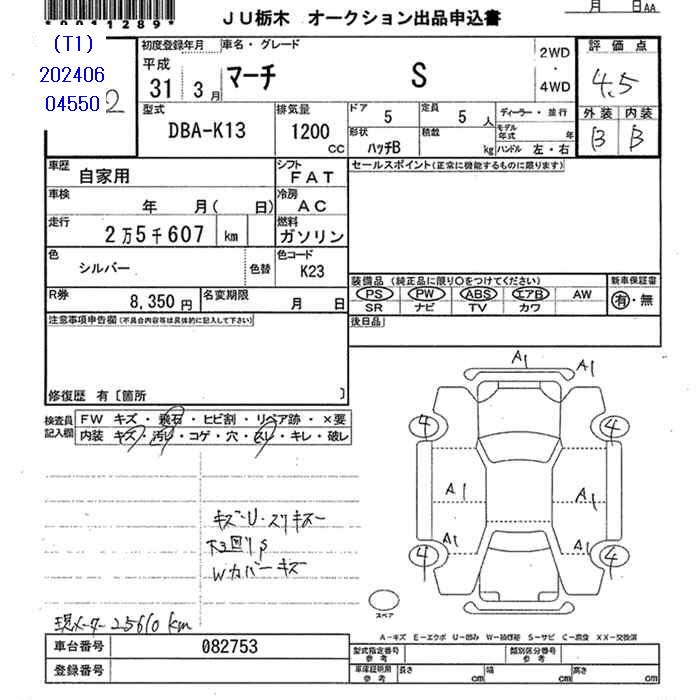 *0011289*
JU栃木 オークション出品申込書
月 日AA
(T1)
202406
04550
2
初度登録年月 車名・グレード
平成
31 3月 マーチ S
2WD
・
4WD
評価点
4.5
外装 内装
B B
型式 排気量 ドア 定員
DBA-K13 1200 CC 5 5人
形状 積載
ハッチB kg
ディーラー・並行
モデル年式 年
ハンドル 左・右
車歴 自家用 シフト FAT
セールスポイント(正常に機能するものに限ります)
車検 年 月( 日) 冷房 AC
走行 2万5千607 km 燃料 ガソリン
色 シルバー 色替 色コード K23
装備品 (純正品に限り○をつけてください) 新車保証書
PS PW ABS エアB AW
SR ナビ TV カワ
有・無
R券 8,350円 名変期限 月 日
後日品
注意事項申告欄(不具合内容等は具体的に記入して下さい)
修復歴 有〔箇所 〕
検査員記入欄
FW キズ・飛石・ヒビ割・リペア跡・×要
内装 キズ・汚レ・コゲ・穴・スレ・キレ・破レ
A1 A1
4 4
A1 A1
A1 A1
4 4
スペア
キズ・U・スリキズ
下回りS
Wカバーキズ
現メーター25610km
A-キズ E-エクボ U-凹み W-補修跡 S-サビ C-腐食 XX-交換済
車台番号 082753
登録番号
型式指定番号 参考 類別区分番号 参考
車庫証明用 参考 長さ cm 幅 cm 高さ cm